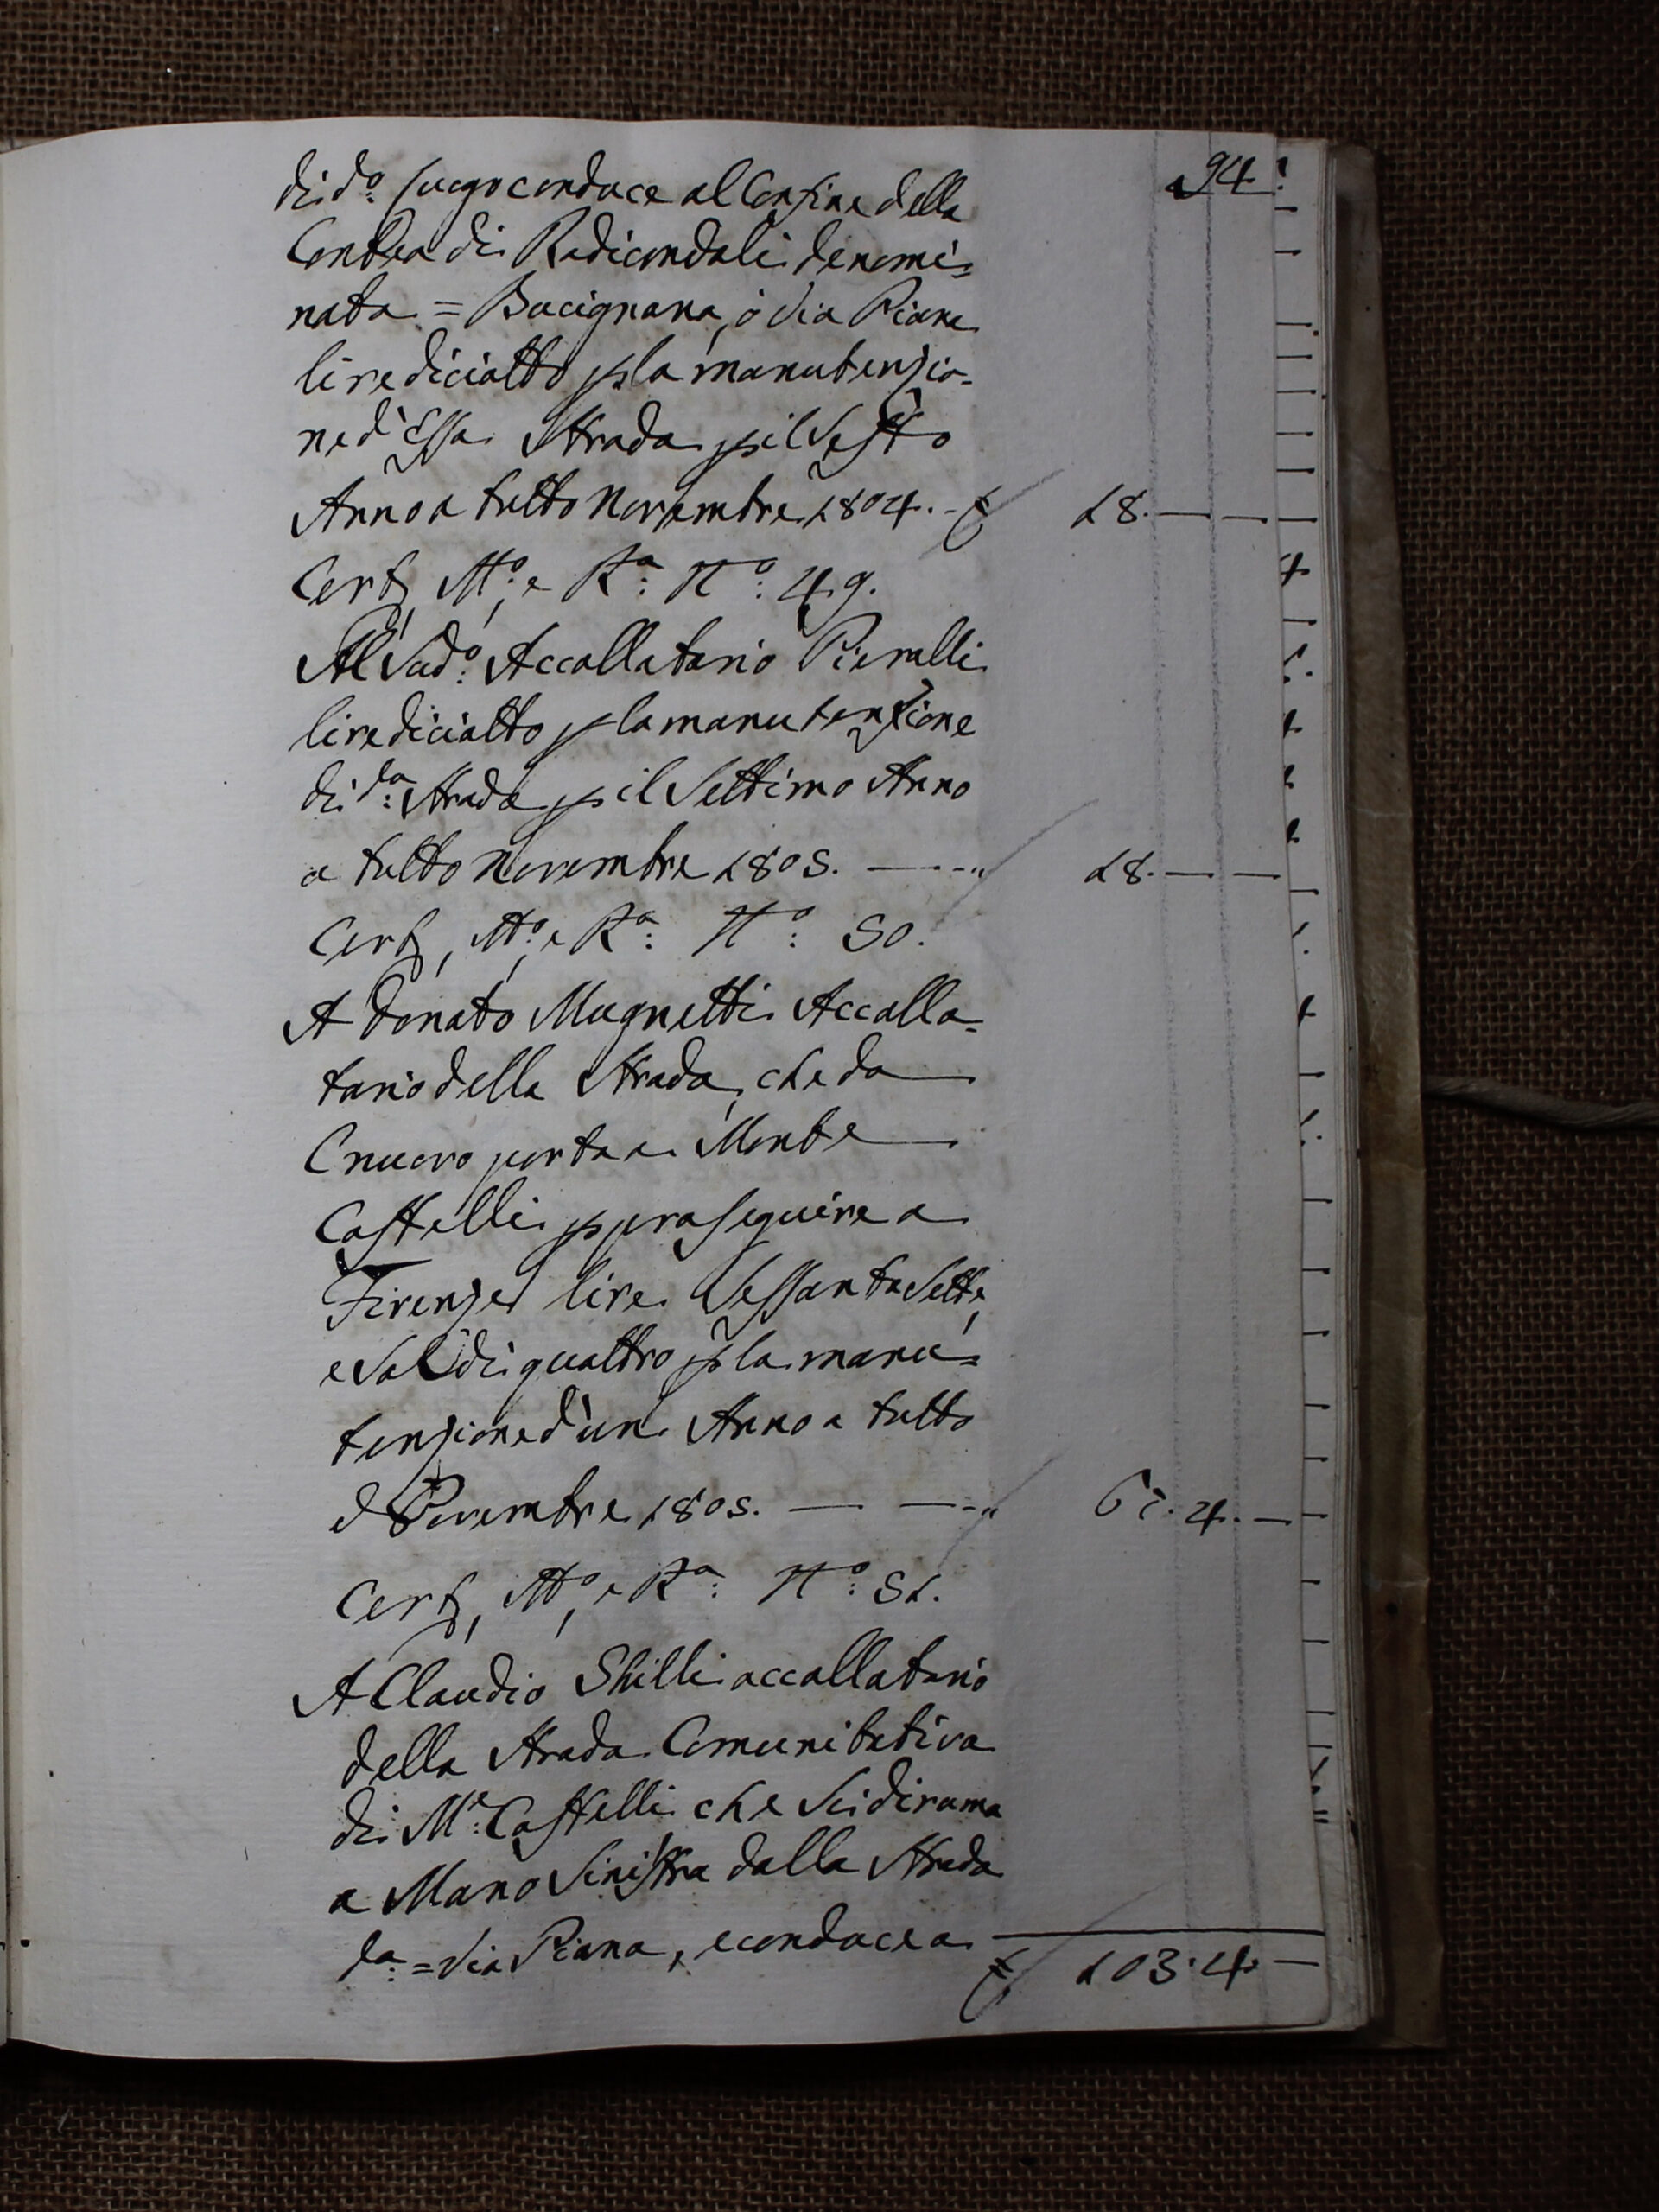 94
di d.o luogo conduce al Confine della
Contea di Radicondoli denomi=
nata = Bucignana, ò Via Piana
lire diciotto p la manutenzio=
ne d'Essa Strada p il Sesto
Anno a tutto Novembre 1804. - £ 18. — —
Cert, M.o, e R.a N.o 49.
Al Sud.o Accollatario Pieralli
lire diciotto p la manutenzione
di d.a Strada p il Settimo Anno
a tutto Novembre 1805. — - - " 18. — —
Cert, M.o, e R.a N.o 50.
A Donato Mugnetti Accolla=
tario della Strada, che da
Cnuovo porta a Monte
Castelli p proseguire a
Firenze lire SessantaSette,
e Soldi quattro p la manu=
tenzione d'un Anno a tutto
Novembre 1805. — — - - " 67. 4. —
Cert, M.o, e R.a N.o 51.
A Claudio Shilli accollatario
della Strada Comunitativa
di M.e Castelli che Si dirama
a Mano Sinistra dalla Strada
d.a = Via Piana, e conduce a
£ 103. 4. —